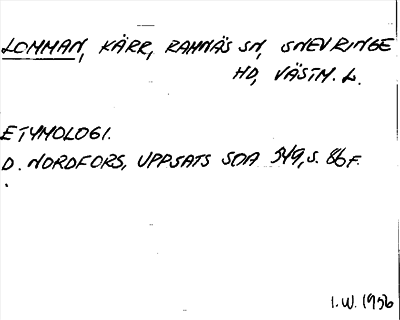 LOMMAN, KÄRR, RAMNÄS SN, SNEVRINGE
HD, VÄSTM. L.
ETYMOLOGI.
D. NORDFORS, UPPSATS SOA 349, S. 86 F.
I.W. 1956